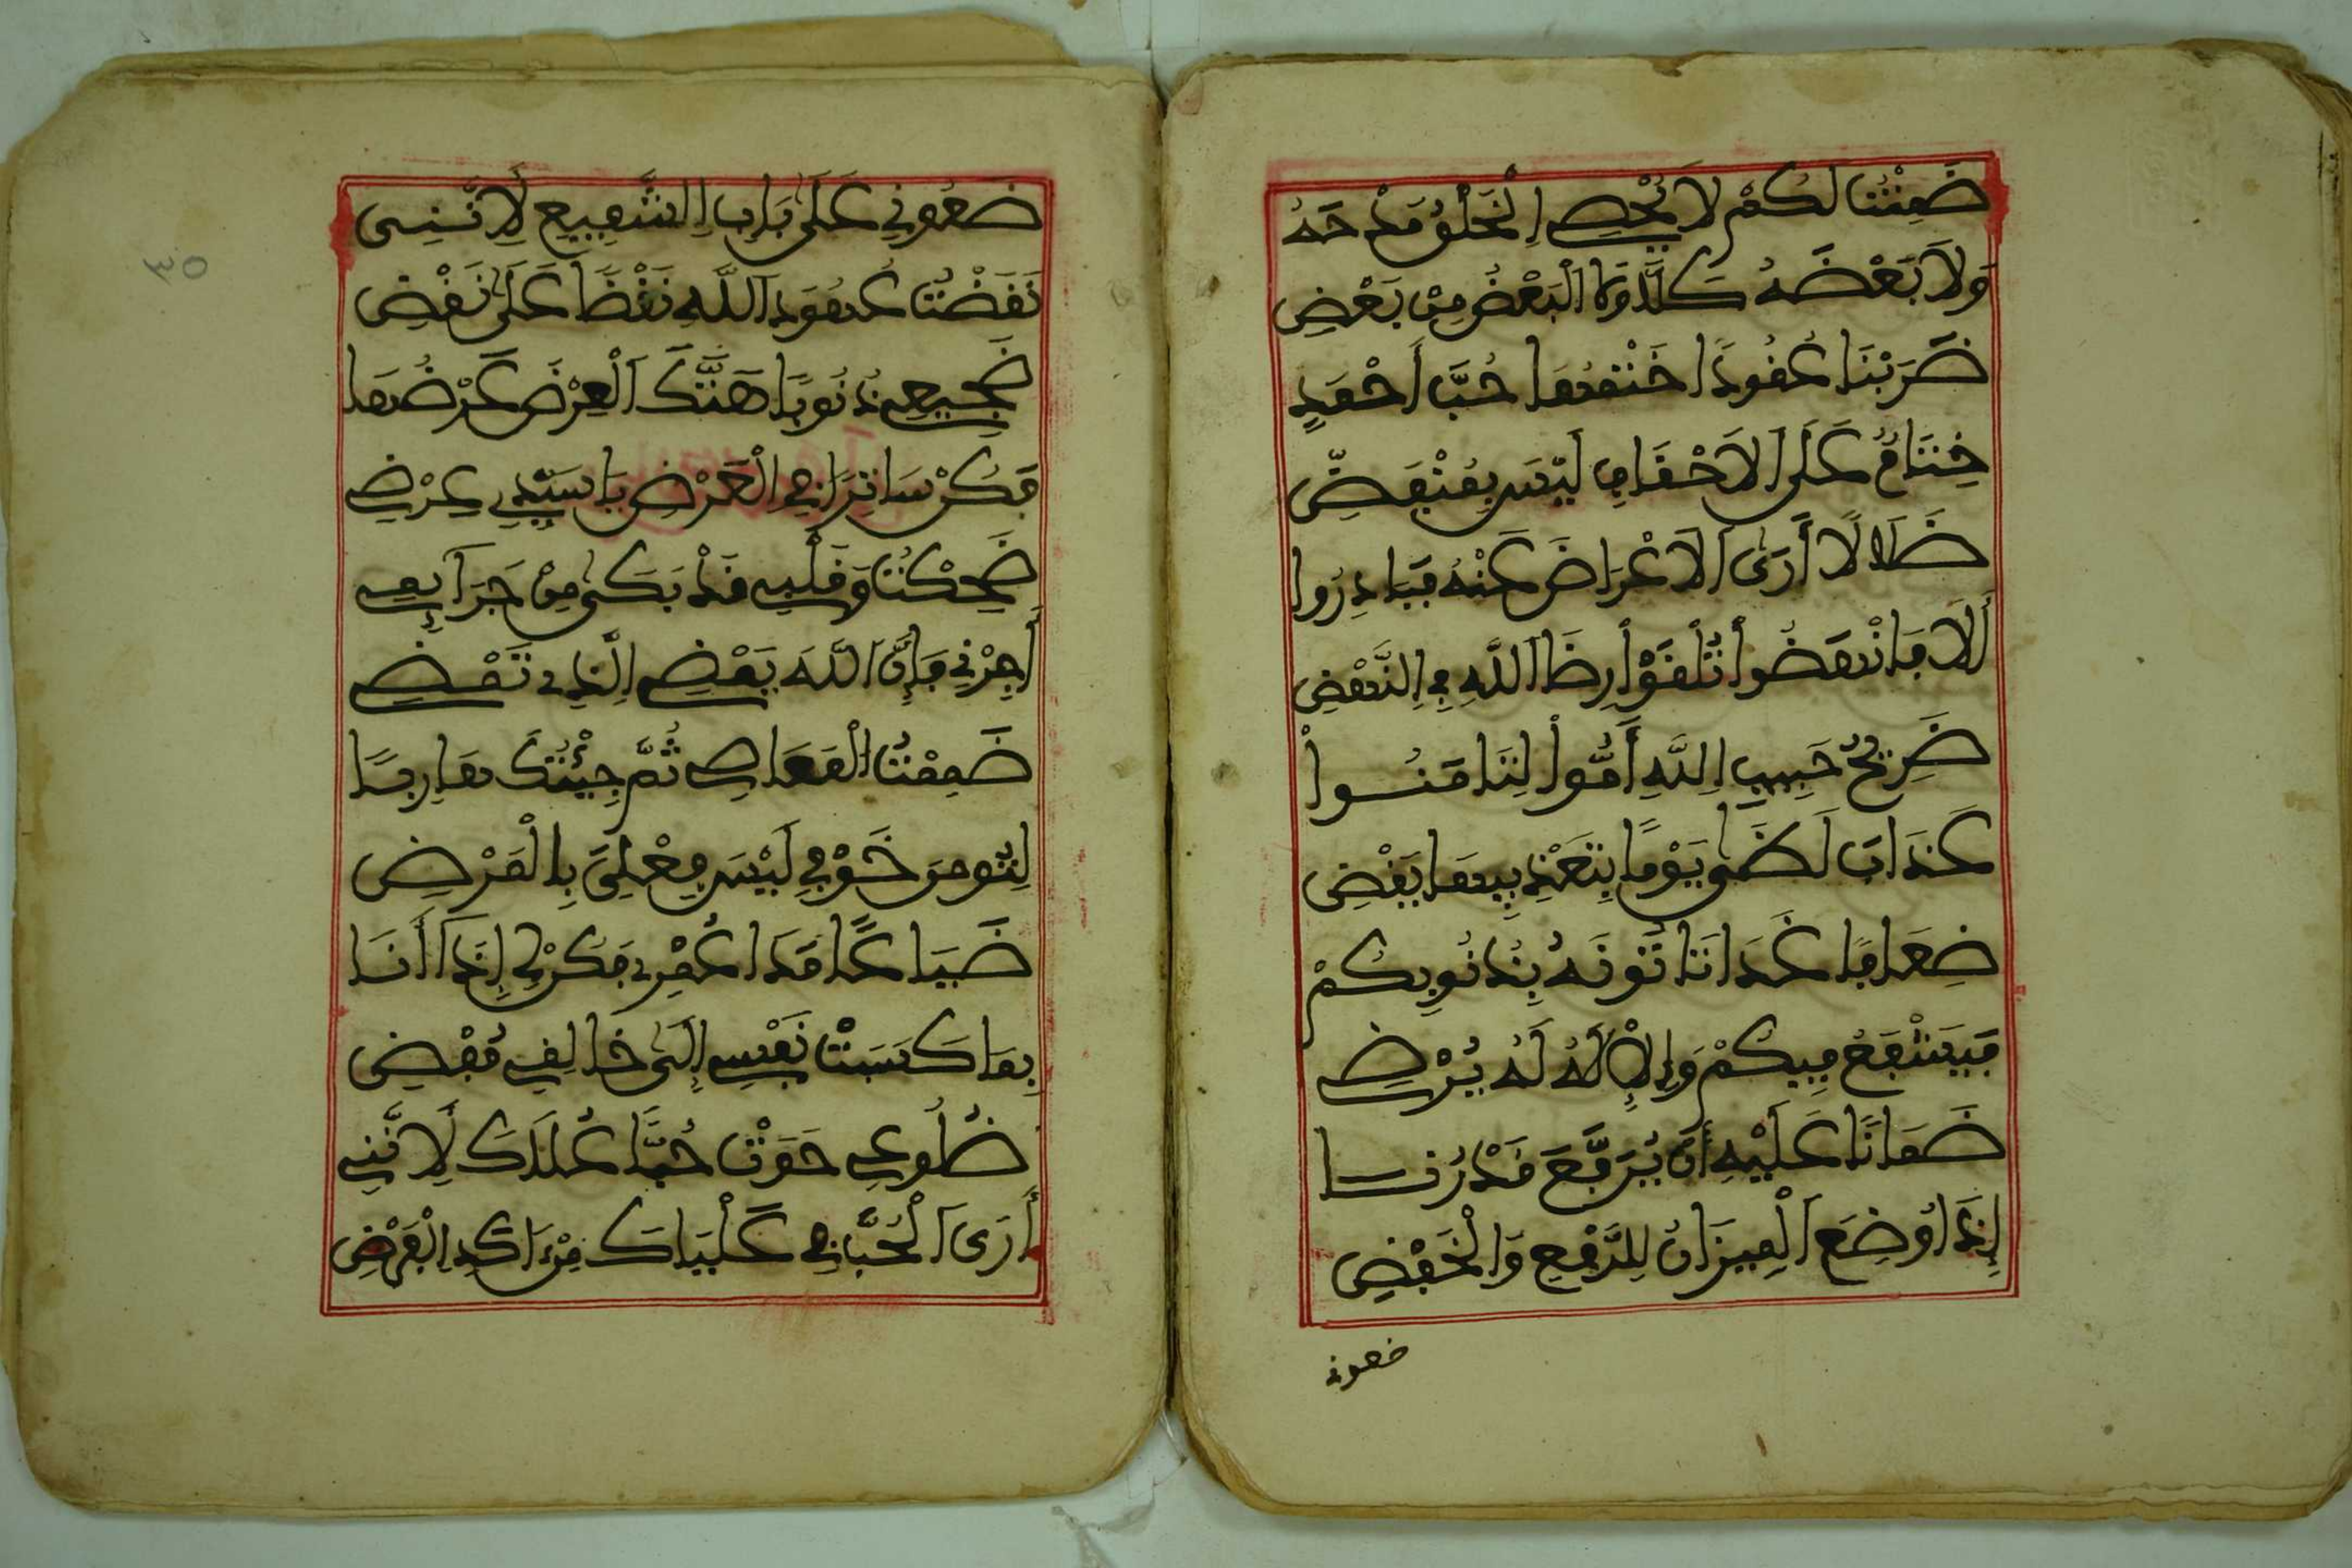 ضَمِنْتُ لَكُمْ لَا يُحْصِي اِلْخَلْقُ مَدْحَهُ
وَلَا بَعْضَهُ كَلَّا وَمَا الْبَعْضُ مِنْ بَعْضِ
ضَرَبْنَا عُقُودًا خَتْمُهَا حُبُّ أَحْمَدٍ
خِتَامٌ عَلَى اَلْأَحْقَابِ لَيْسَ بِمُنْفَضِّ
ضَلَالًا أَرَى اَلْأَعْرَاضَ عَنْهُ فَبَادِرُوا
أَلَا فَانْهَضُوا تَلْقَوْا رِضَا اَللَّهِ فِي اِلنَّهْضِ
ضَرِيحُ حَبِيبِ اِللَّهِ أُمُّوا لِتَامَنُوا
عَذَابَ لَظَى يَوْمًا بِتَعْذِيبِهَا يَقْضِي
ضِعَافًا غَدَا تَاتُونَهُ بِذُنُوبِكُمْ
فَيَشْفَعُ فِيكُمْ وَاِلْإِلَهُ لَهُ يُرْضِي
ضَمَانًا عَلَيْهِ أَنْ يُرَفِّعَ قَدْرَنَا
إِذَا وُضِعَ اَلْمِيزَانُ لِلرَّفْعِ وَالْخَفْضِ
ضعونے
ضَعُونِي عَلَى بَابِ اِلشَّفِيعِ لِأَنَّنِي
نَقَضْتُ عُهُودَ اَللَّهِ نَقْضًا عَلَى نَقْضِ
ضَجِيعِي ذُنُوبًا هَتَّكَ اَلْعِرْضَ عَرْضُهَا
فَكُنْ سَاتِرًا فِي الْعَرْضِ يَا سَيِّدِي عِرْضِي
ضَحِكْتُ وَقَلْبِي قَدْ بَكَى مِنْ جَرَآئِمِي
أَجِرْنِي فَإِنَّ اَللَّهَ يَقْضِي اِلَّذِي تَقْضِي
ضَمِمْتُ الْمَعَاصِي ثُمَّ جِئْتُكَ هَارِبًا
لِتُومِنَ خَوْفِي لَيْسَ فِعْلِيَ بِالْمَرْضِي
ضَيَاعًا مَدَا عُمْرِي فَكُنْ لِي إِذَا أَنَا
بِمَا كَسَبَتْ نَفْسِي إِلَى خَالِقِي مُفْضِي
ضُلُوعِي حَوَتْ حُبًّا عُلَاكَ لِأَنَّنِي
أَرَى اَلْحُبَّ فِي عَلْيَاكَ مِنْ اَكَدِ اِلْفَرْضِ